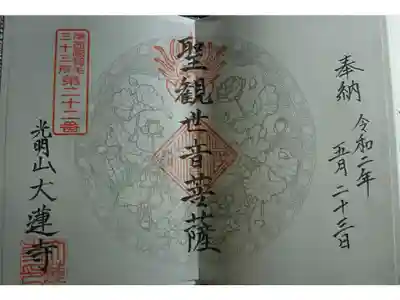 奉納
令和二年
五月二十三日
聖観世音菩薩
三十三所
第二十二番
光明山大蓮寺